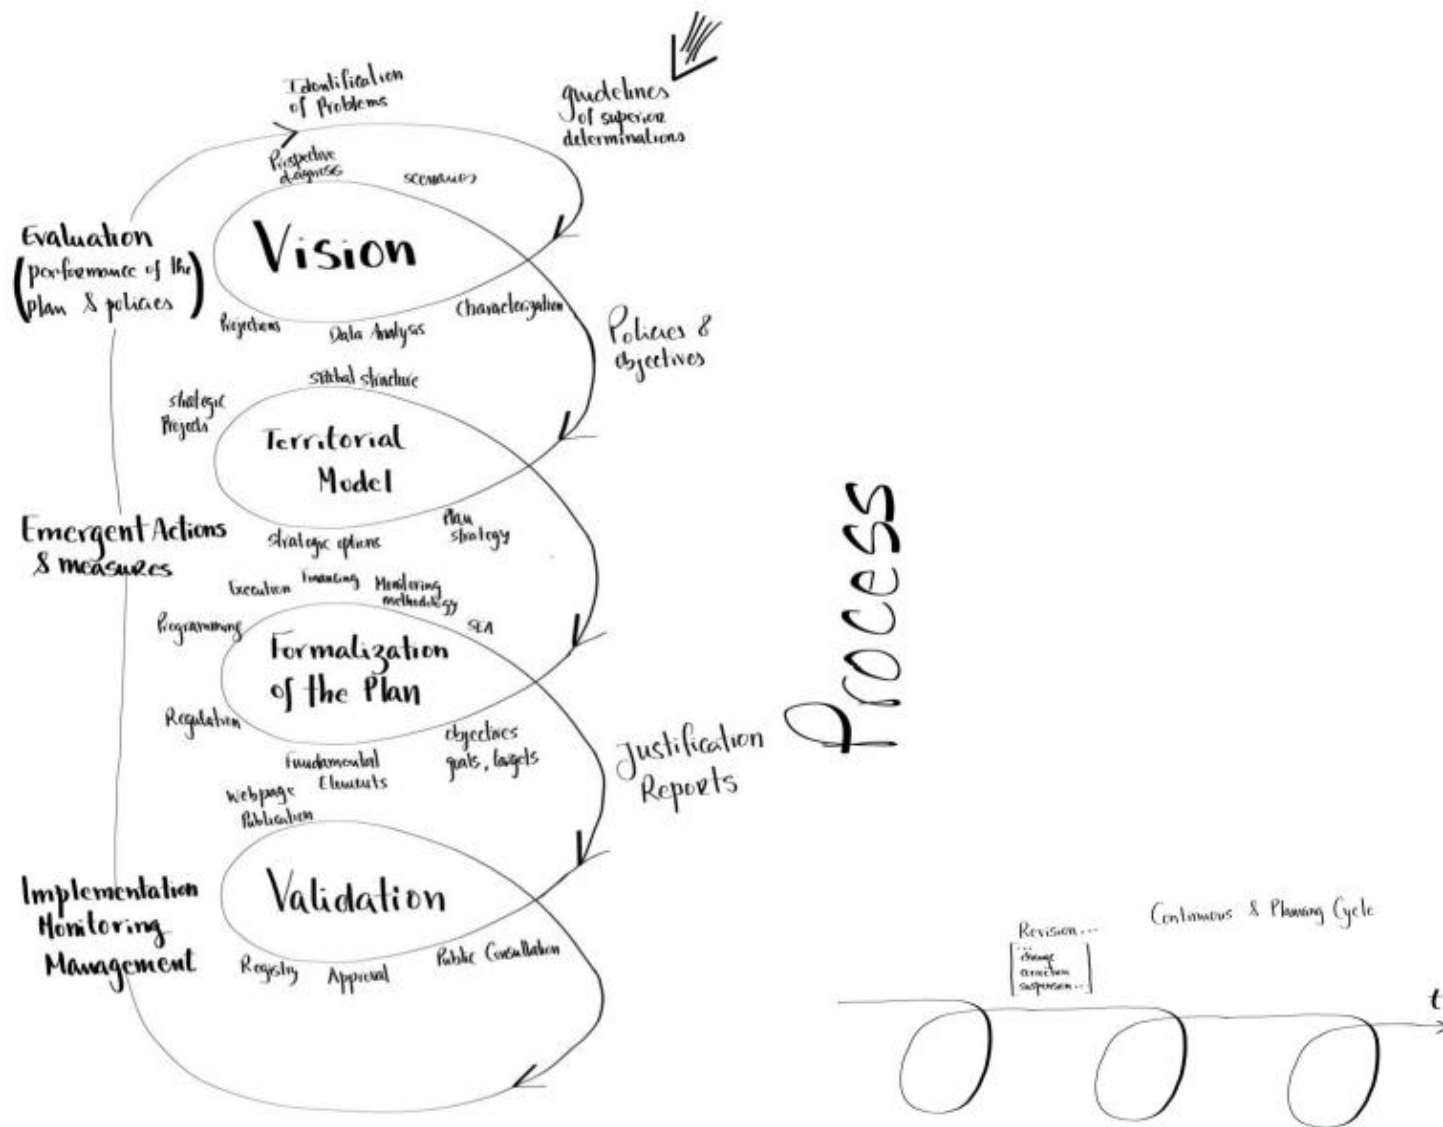 Identification
of Problems
guidelines
of superior
determinations
Prospective
diagnosis
scenarios
Evaluation
(performance of the
plan & policies)
Vision
Projections
Data Analysis
Characterization
Policies &
objectives
spatial structure
strategic
Projects
Territorial
Model
strategic options
Plan
strategy
Emergent Actions
& measures
Execution
Financing
Monitoring
methodology
SEA
Programming
Formalization
of the Plan
Regulation
Fundamental
Elements
objectives
goals, targets
Justification
Reports
Process
Webpage
Publication
Validation
Implementation
Monitoring
Management
Registry
Approval
Public Consultation
Revision...
...
change
correction
suspension...
Continuous & Planning Cycle
t